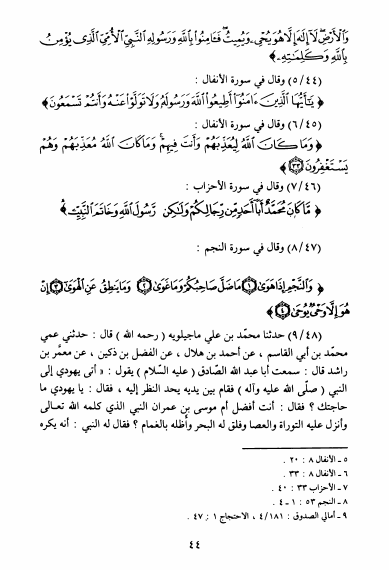 وَالْأَرْضِ لَآ إِلَٰهَ إِلَّا هُوَ يُحْيِۦ وَيُمِيتُ فَـَٔامِنُوا۟ بِٱللَّهِ وَرَسُولِهِ ٱلنَّبِيِّ ٱلْأُمِّيِّ ٱلَّذِى يُؤْمِنُ
بِٱللَّهِ وَكَلِمَٰتِهِۦ ﴾
(٥/٤٤) وقال في سورة الأنفال :
﴿ يَٰٓأَيُّهَا ٱلَّذِينَ ءَامَنُوٓا۟ أَطِيعُوا۟ ٱللَّهَ وَرَسُولَهُۥ وَلَا تَوَلَّوْا۟ عَنْهُ وَأَنتُمْ تَسْمَعُونَ ﴾
(٦/٤٥) وقال في سورة الأنفال :
﴿ وَمَا كَانَ ٱللَّهُ لِيُعَذِّبَهُمْ وَأَنتَ فِيهِمْ وَمَا كَانَ ٱللَّهُ مُعَذِّبَهُمْ وَهُمْ
يَسْتَغْفِرُونَ ٣٣ ﴾
(٧/٤٦) وقال في سورة الأحزاب :
﴿ مَّا كَانَ مُحَمَّدٌ أَبَآ أَحَدٍ مِّن رِّجَالِكُمْ وَلَٰكِن رَّسُولَ ٱللَّهِ وَخَاتَمَ ٱلنَّبِيِّـۧنَ ﴾
(٨/٤٧) وقال في سورة النجم :
﴿ وَٱلنَّجْمِ إِذَا هَوَىٰ ١ مَا ضَلَّ صَاحِبُكُمْ وَمَا غَوَىٰ ٢ وَمَا يَنطِقُ عَنِ ٱلْهَوَىٰٓ ٣ إِنْ
هُوَ إِلَّا وَحْىٌ يُوحَىٰ ٤ ﴾
(٩/٤٨) حدثنا محمّد بن علي ماجيلويه (رحمه الله) قال : حدثني عمي
محمّد بن أبي القاسم ، عن أحمد بن هلال ، عن الفضل بن دكين ، عن معمّر بن
راشد قال : سمعت أبا عبد الله الصّادق (عليه السّلام) يقول : « أتى يهودي إلى
النبي (صلّى الله عليه وآله) فقام بين يديه يحد النظر إليه ، فقال : يا يهودي ما
حاجتك ؟ فقال : أنت أفضل أم موسى بن عمران النبي الذي كلمه الله تعالى
وأنزل عليه التوراة والعصا وفلق له البحر وأظله بالغمام ؟ فقال له النبي : أنه يكره
٥ ـ الأنفال ٨ : ٢٠ .
٦ ـ الأنفال ٨ : ٣٣ .
٧ ـ الأحزاب ٣٣ : ٤٠ .
٨ ـ النجم ٥٣ : ١ ـ ٤ .
٩ ـ أمالي الصدوق : ٤/١٨١ ، الاحتجاج ١ : ٤٧ .
٤٤